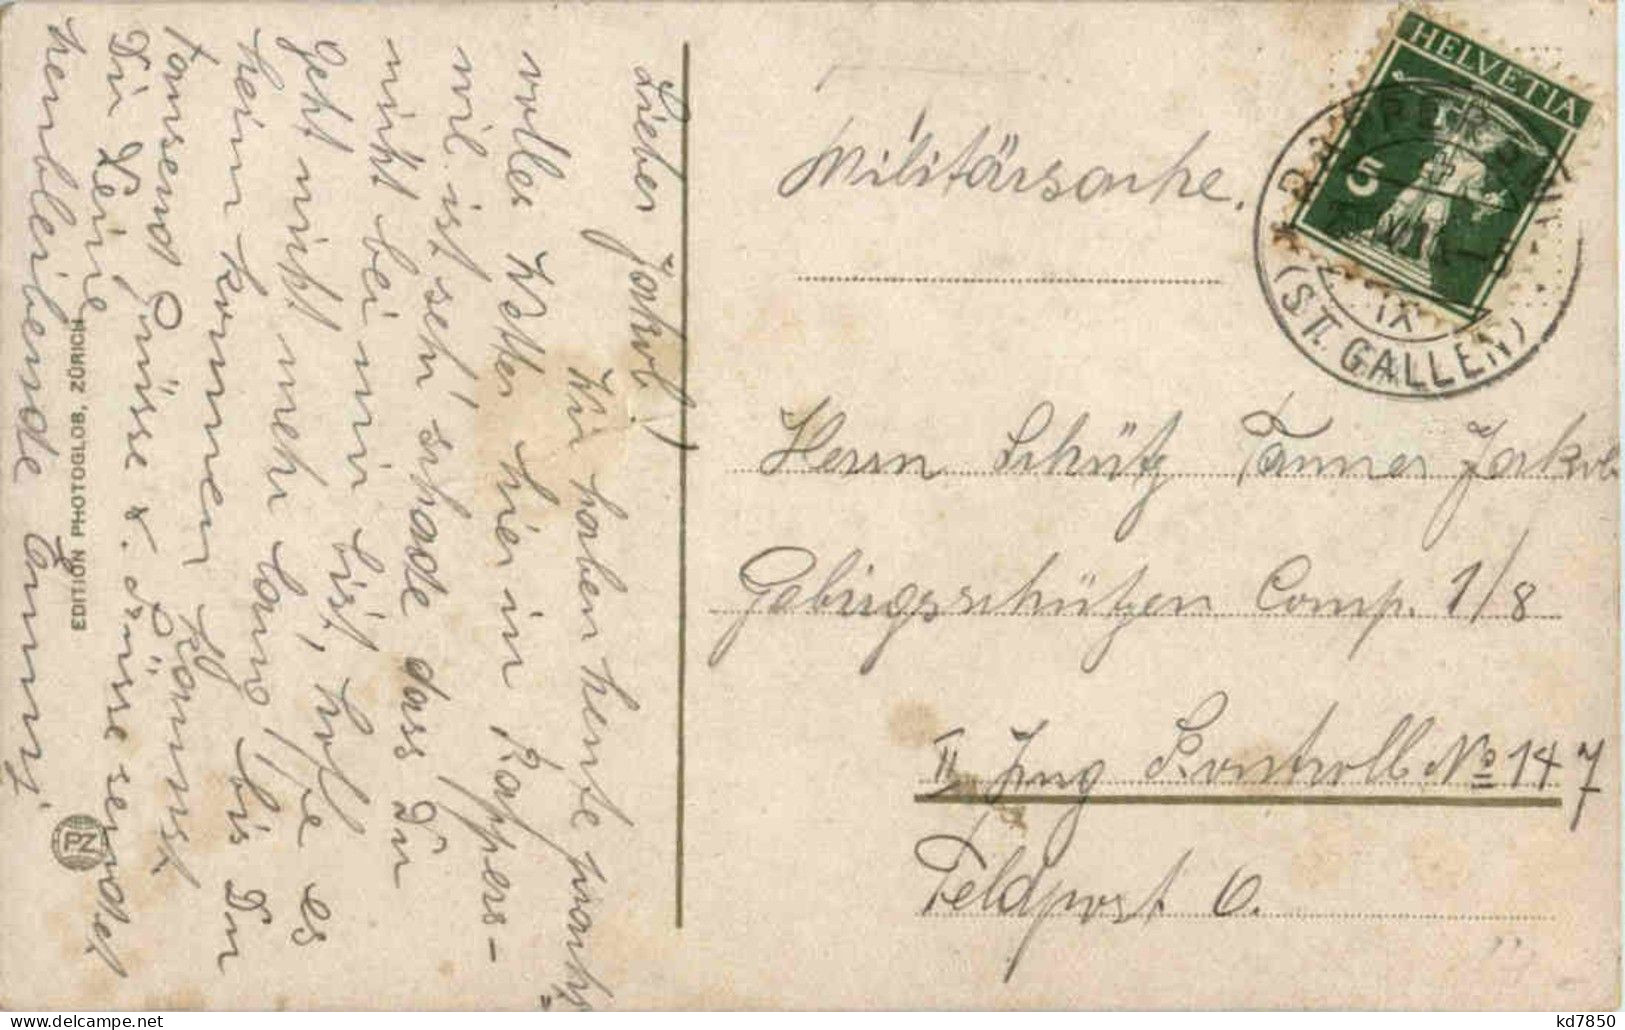 Lieber Jakob!
Wir haben heute pracht-
volles Wetter hier in Rappers-
wil ist sehr schade dass Du
nicht bei mir bist, hoffe es
geht nicht mehr lang bis Du
heim kommen kannst.
tausend Grüsse u. Küsse sendet
Dir Deine
henbleibende Emmy
EDITION PHOTOGLOB, ZÜRICH
PZ
Militärsache.
HELVETIA
5
(ST. GALLEN)
IX
Herrn Schütz Tanner Jakob
Gebirgsschützen Comp. 1/8
II Zug Kontroll No 147
Feldpost 6.
kd7850